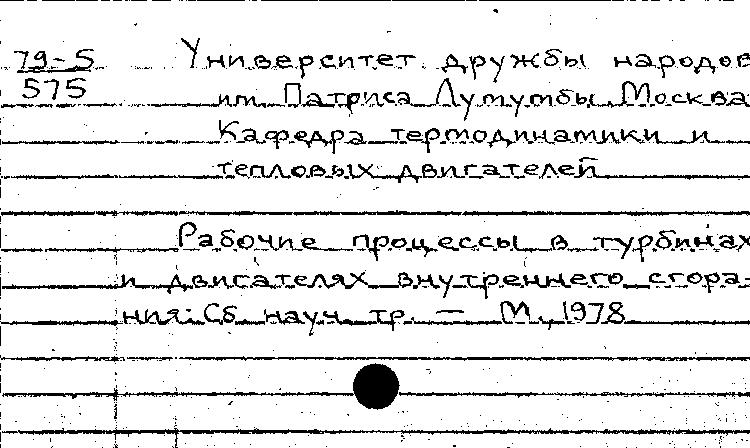 79-5
575
Университет дружбы народов
им Патриса Лумумбы, Москва
Кафедра термодинамики и
тепловых двигателей
Рабочие процессы в турбинах
и двигателях внутреннего сгора-
ния: Сб науч. тр. — М., 1978